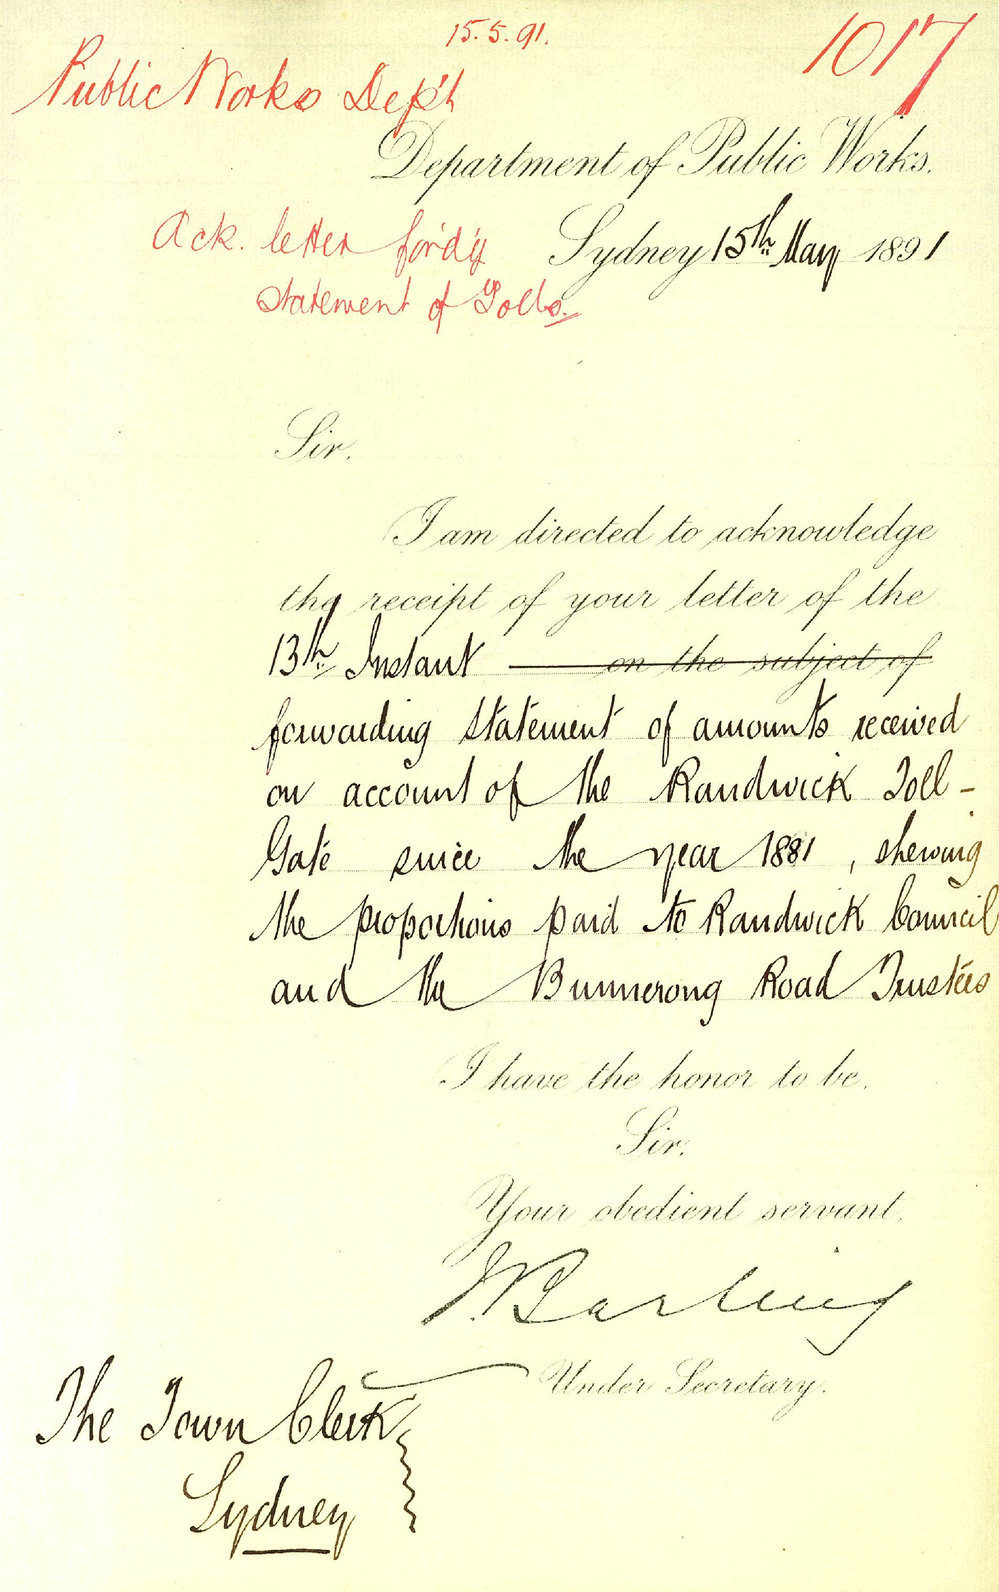 15.5.91.
1017
Public Works Dep't
Department of Public Works.
Ack. letter ford'g
Sydney 15th May 1891
Statement of Tolls.
Sir.
I am directed to acknowledge
the receipt of your letter of the
13th Instant on the subject of
forwarding statement of amounts received
on account of the Randwick Toll-
Gate since the year 1881, shewing
the proportions paid to Randwick Council
and the Bunnerong Road Trustees
I have the honor to be.
Sir.
Your obedient servant.
J Barling
Under Secretary.
The Town Clerk
Sydney